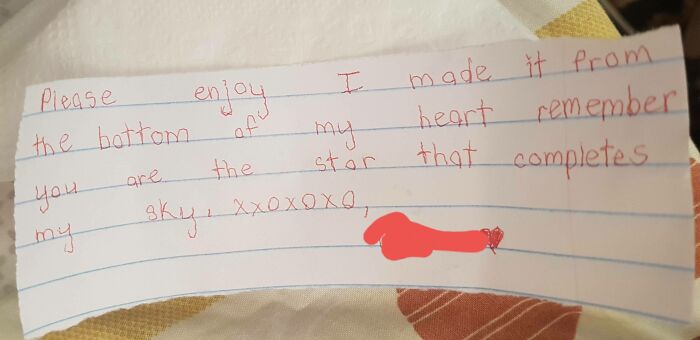 Please enjoy I made it from
the bottom of my heart remember
you are the star that completes
my sky, xxoxoxo,